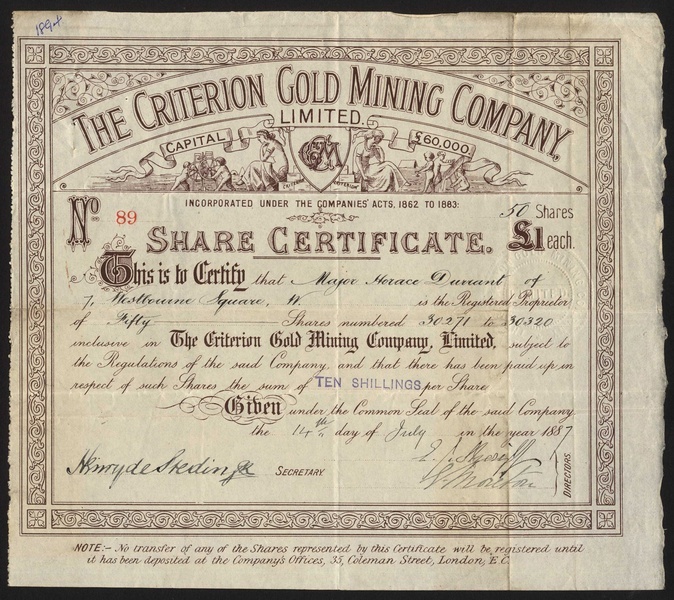 1894
THE CRITERION GOLD MINING COMPANY,
LIMITED.
CAPITAL £60,000
CGM
CRITERION CRITERION
INCORPORATED UNDER THE COMPANIES' ACTS, 1862 TO 1883:
No. 89
50 Shares
SHARE CERTIFICATE. £1 each.
This is to Certify that Major Horace Durrant of
7, Westbourne Square, W. is the Registered Proprietor
of Fifty Shares numbered 30271 to 30320
inclusive in The Criterion Gold Mining Company, Limited, subject to
the Regulations of the said Company, and that there has been paid up in
respect of such Shares the sum of TEN SHILLINGS per Share
Given under the Common Seal of the said Company
the 14th day of July in the year 1887
SECRETARY.
Moreton
DIRECTORS.
NOTE:- No transfer of any of the Shares represented by this Certificate will be registered until
it has been deposited at the Company's Offices, 35, Coleman Street, London, E.C.